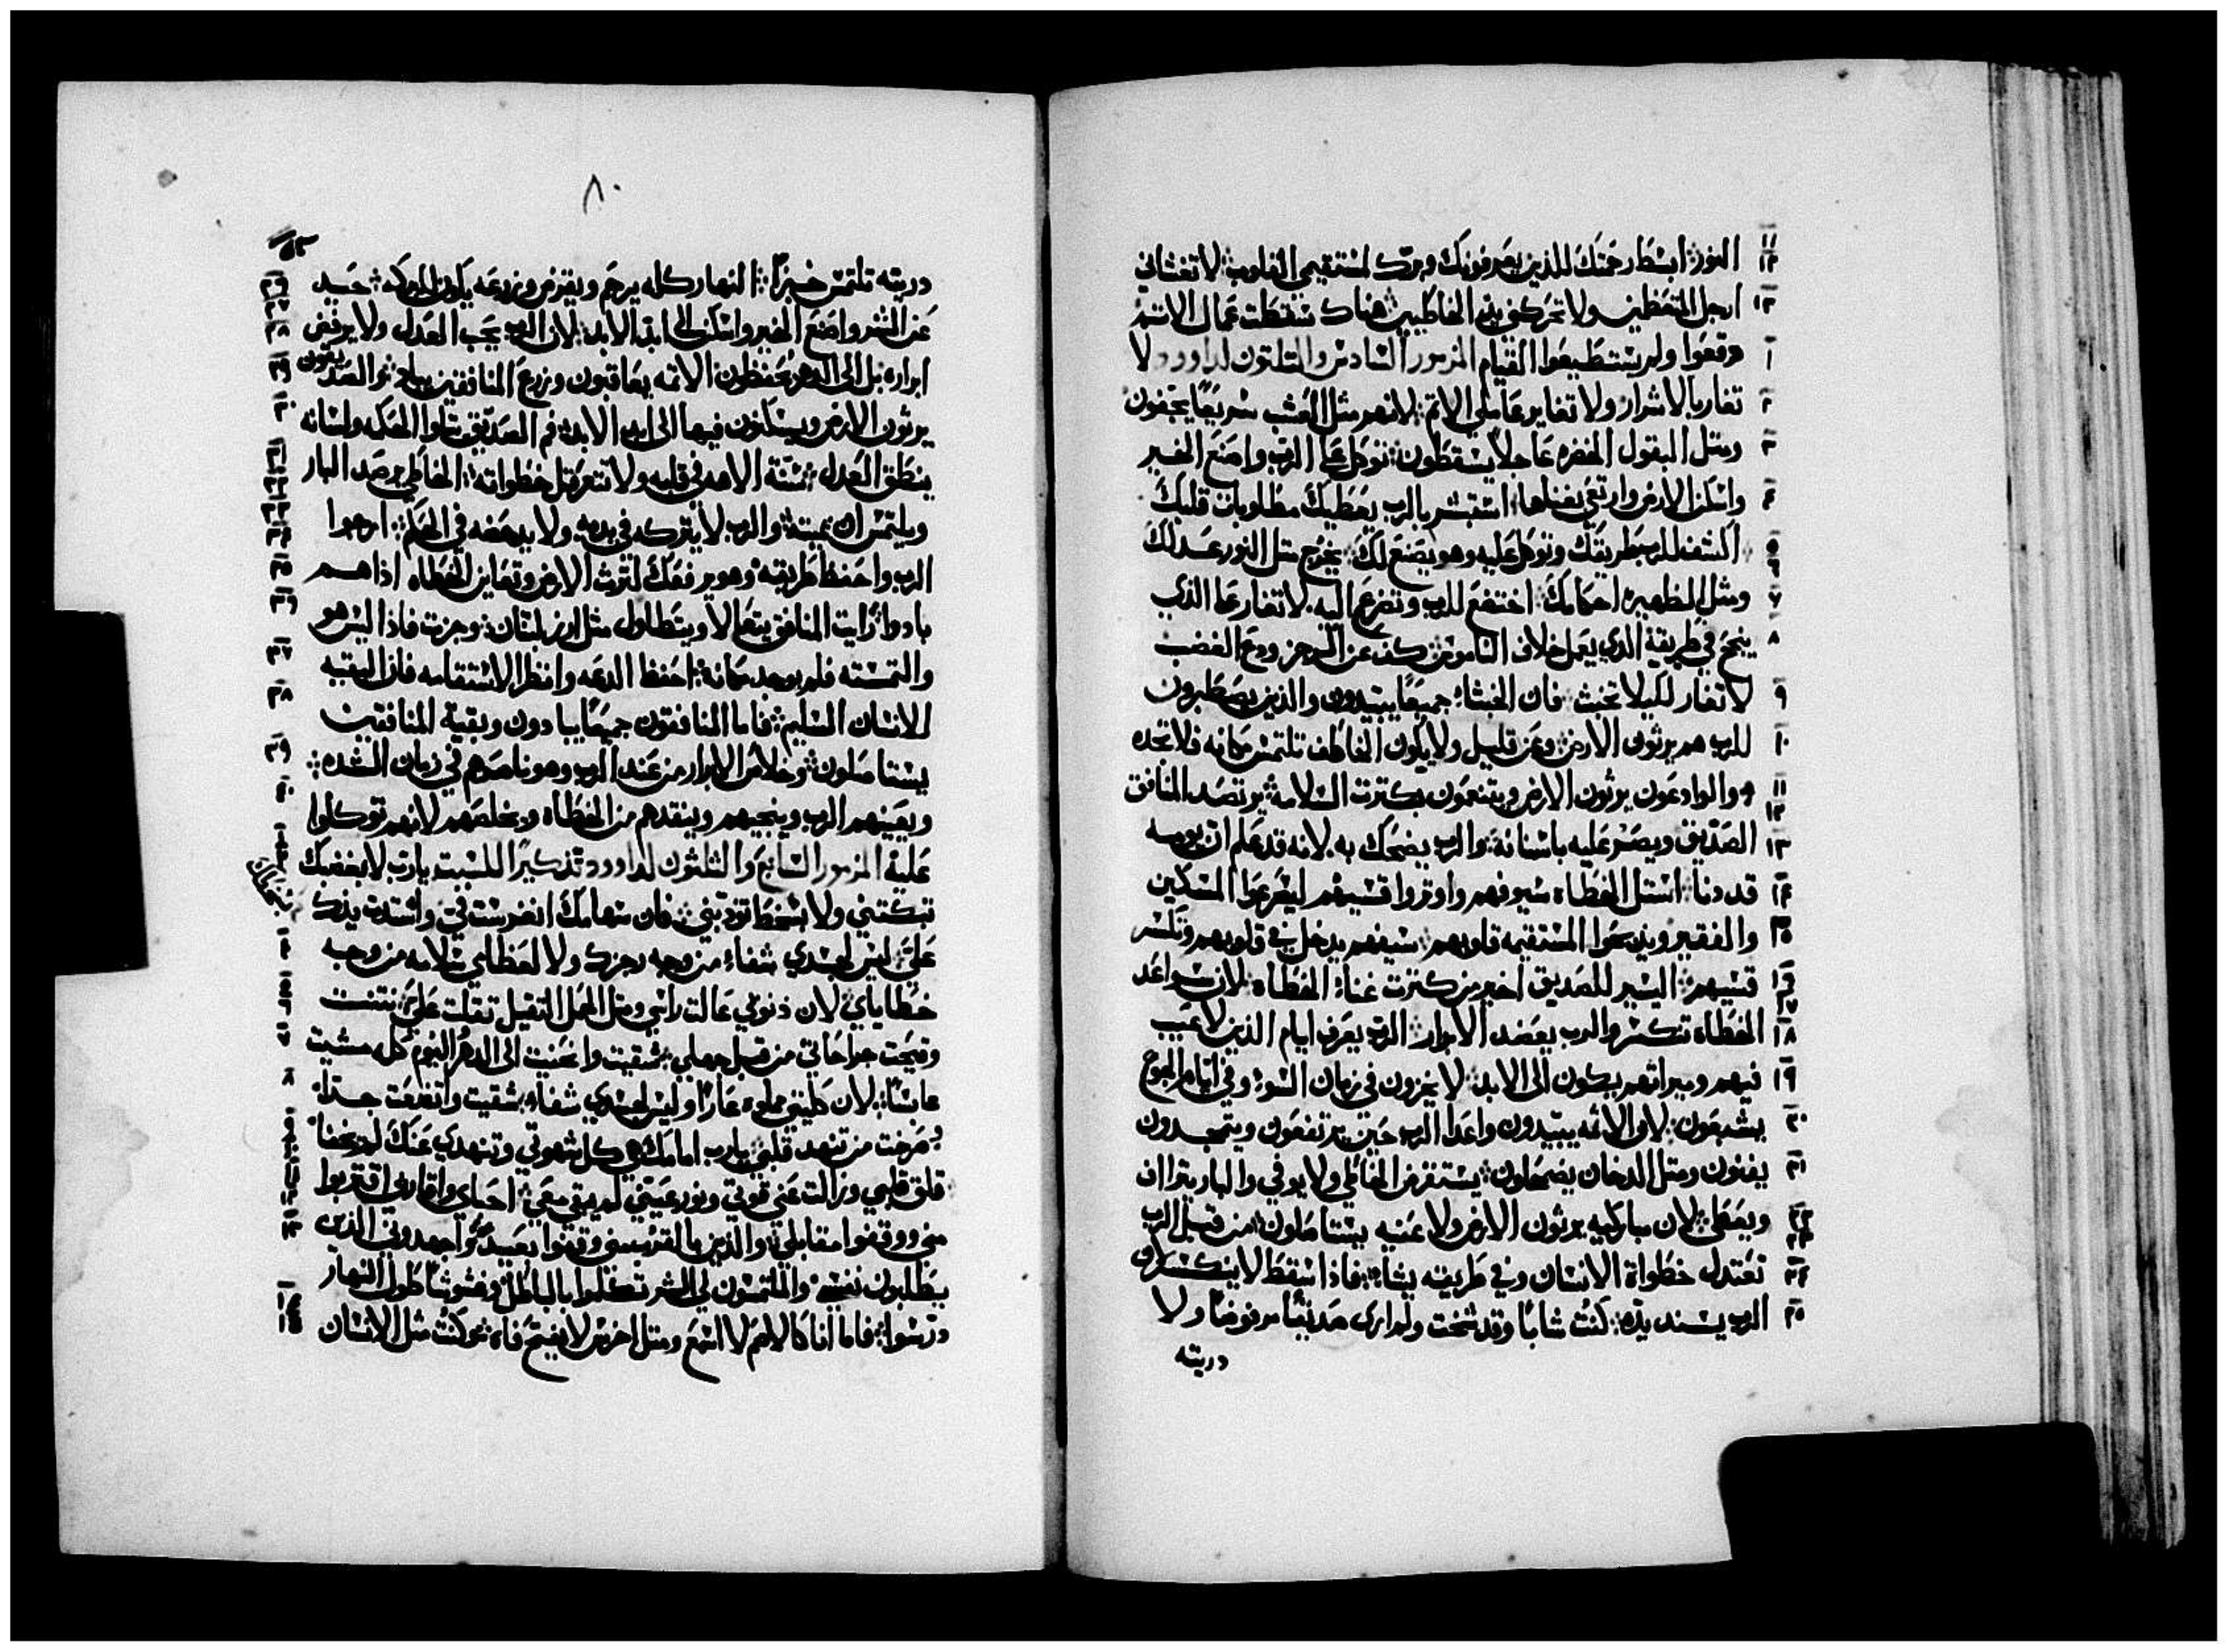 النور ابسط رحمتك للذين يعرفونك وبرك لمستقيمي القلوب لا تغشاني
ارجل المتعظمين ولا تحركني يد الخاطيين هناك سقطت عمال الاثم
دفعوا ولم يستطيعوا القيام المزمور السادس والثلثون لداوود لا
تغار بالاشرار ولا تغاير عاملي الاثم لانهم مثل العشب سريعًا يجفون
ومثل البقول الخضره عاجلاً يسقطون توكل على الرب واصنع الخير
واسكن الارض وارتعي بغناها استبشر بالرب يعطيك مطلوبات قلبك
اكشف للرب طريقك وتوكل عليه وهو يصنع لك يخرج مثل النور عدلك
ومثل الظهيره احكامك اخضع للرب وتضرع اليه لا تغار على الذي
ينجح في طريقه الذي يعمل خلاف الناموس كف عن الرجز ودع الغضب
لا تغار لكيلا تخبث فان الخبثاء جميعًا يبيدون والذين يصطبرون
للرب هم يرثون الارض وعن قليل ولا يكون الخاطف تلتمس مكانه فلا تجده
والوادعون يرثون الارض ويتنعمون بكثرت السلامه يرتصد المنافق
الصديق ويصر عليه باسنانه والرب يضحك به لانه قد علم ان يومه
قد دنا استل الخطاه سيوفهم واوتروا قسيهم ليصرعوا المسكين
والفقير ويذبحوا المستقيمه قلوبهم سيفهم يدخل في قلوبهم وتكسر
قسيهم اليسير للصديق اخير من كثرت غناء الخطاه لان سواعد
الخطاه تكسر والرب يعضد الابرار الرب يعرف ايام الذين لا عيب
فيهم وميراثهم يكون الى الابد لا يخزون في زمان السوء وفي ايام الجوع
يشبعون لان الاثمه يبيدون واعدا الرب حين يرتفعون ويتمجدون
يفنون ومثل الدخان يضمحلون يستقرض الخاطي ولا يوفي والبار يتراف
ويعطى لان مباركيه يرثون الارض ولاعنيه يستاصلون من قبل الرب
تعتدل خطوات الانسان وفي طريقه يشاء فاذا سقط لا ينكسر لان
الرب يسند يده كنت شابًا وقد شخت ولم ارى صديقًا مرفوضًا ولا
دريته
٨٠
دريته تلتمس خبزًا النهار كله يرحم ويقرض وزرعه يكون للبركه حيد
عن الشر واصنع الخير واسكن الى ابد الابد لان الرب يحب العدل ولا يرفض
ابراره بل الى الدهر يحفظون الاثمه يعاقبون وزرع المنافقين يباد والصديقون
يرثون الارض ويسكنون فيها الى ابد الابد فم الصديق يتلوا الحكمه ولسانه
ينطق العدل سنة الاهه في قلبه ولا تتعرقل خطواته الخاطي يرصد البار
ويلتمس ان يميته والرب لا يتركه في يديه ولا يدحضه في الحكم ارجوا
الرب واحفظ طريقه وهو يرفعك لترث الارض وتعاين الخطاه اذا هم
بادوا رايت المنافق يتعالا ويتطاول مثل ارز لبنان وجزت فاذا ليس هو
والتمسته فلم يوجد مكانه احفظ الدعه وانظر الاستقامه فان البقيه
للانسان السليم فاما المنافقون جميعًا يبادون وبقية المنافقين
يستاصلون وخلاص الابرار من عند الرب وهو ناصرهم في زمان الشده
ويعينهم الرب وينجيهم وينقدهم من الخطاه ويخلصهم لانهم توكلوا
عليه المزمور السابع والثلثون لداوود تذكيرًا للسبت يارب لا بغضبك
تبكتني ولا بسخطك تودبني فان سهامك انغرست في واشتدت يدك
على ليس لجسدي شفاء من وجه رجزك ولا لعظامي سلامه من وجه
خطاياي لان ذنوبي عالت راسي ومثل الحمل الثقيل ثقلت علي نتنت
وقيحت جراحاتي من قبل جهلي شقيت وانحنيت الى الدهر اليوم كله مشيت
عابسًا لان كليتي ملوه عارًا وليس لجسدي شفاء شقيت واتضعت جدًا
صرخت من تنهد قلبي يارب امامك هي كل شهوتي وتنهدي عنك لم يخفا
قلق قلبي وزالت عني قوتي ونور عيني لم يبقى معي احباي واقاربي اقتربوا
مني ووقفوا مقابلي والذين بالقرب مني وقفوا بعيدًا واجهدوني الذين
يطلبون نفسي والملتمسون لي الشر تكلموا بالباطل وغشوشًا طول النهار
درسوا فاما انا كالاصم لا اسمع ومثل اخرس لا يفتح فاه وكنت مثل الانسان